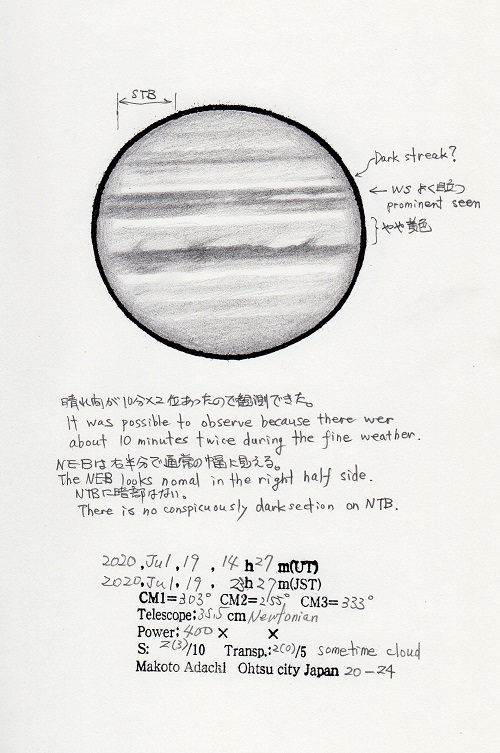 STB
Dark streak?
← WS よく目立つ
prominent seen
やや黄色
晴れ間が10分×2位あったので観測できた。
It was possible to observe because there wer
about 10 minutes twice during the fine weather.
NEBは右半分で通常の幅に見える。
The NEB looks nomal in the right half side.
NTBに暗部はない。
There is no conspicuously dark section on NTB.
2020, Jul, 19, 14 h 27 m(UT)
2020, Jul. 19, 23h 27 m(JST)
CM1= 303° CM2= 255° CM3= 333°
Telescope: 35.5 cm Newtonian
Power: 400 × ×
S: 2(3)/10 Transp.: 2(0)/5 sometime cloud
Makoto Adachi Ohtsu city Japan 20-24